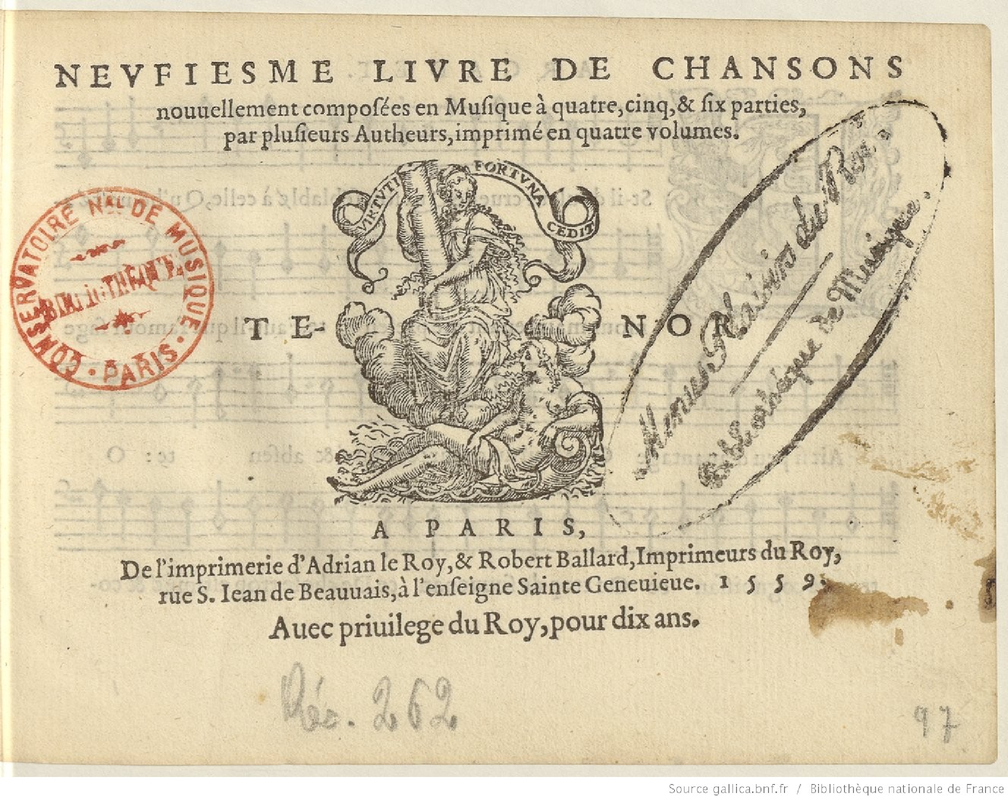 NEVFIESME LIVRE DE CHANSONS
nouuellement composées en Musique à quatre, cinq, & six parties,
par plusieurs Autheurs, imprimé en quatre volumes.
VIRTUTI FORTVNA CEDIT
CONSERVATOIRE Nal DE MUSIQUE
BIBLIOTHÈQUE
PARIS
TE-NOR
Menus Plaisirs du Roi.
Bibliothèque de Musique.
A PARIS,
De l'imprimerie d'Adrian le Roy, & Robert Ballard, Imprimeurs du Roy,
rue S. Iean de Beauuais, à l'enseigne Sainte Geneuieue. 1559.
Auec priuilege du Roy, pour dix ans.
Rés. 262
97
Source gallica.bnf.fr / Bibliothèque nationale de France